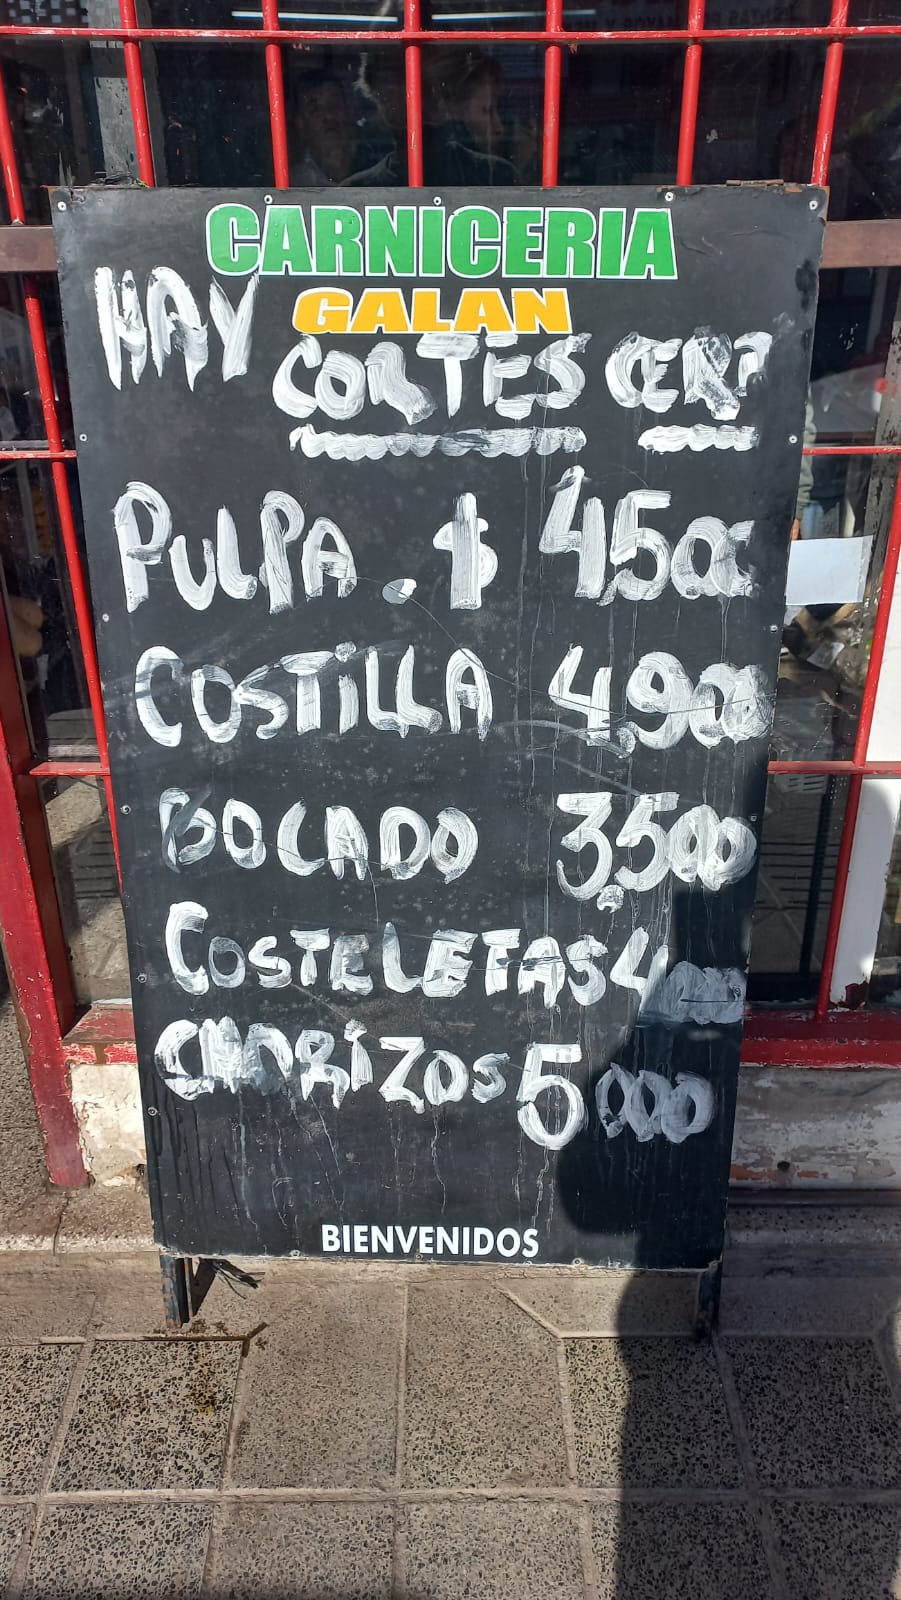 CARNICERIA
GALAN
HAY
CORTES CERD
PULPA. $ 4,500
COSTILLA 4,900
BOCADO 3,500
COSTELETAS 4000
CHORIZOS 5000
BIENVENIDOS